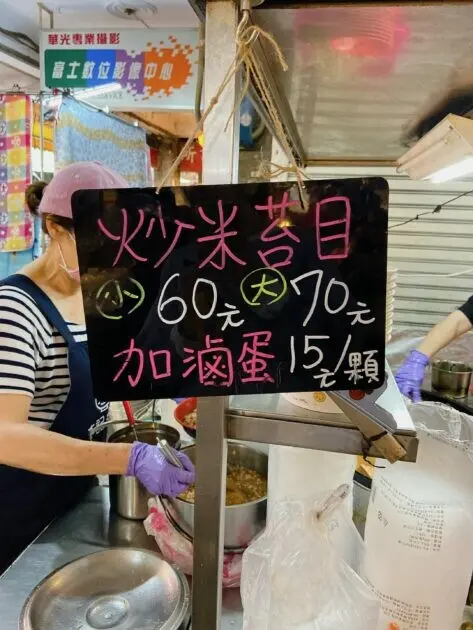 華光專業攝影
富士數位影像中心
SERVICE
炒米苔目
小 60元 大 70元
加滷蛋 15元/顆